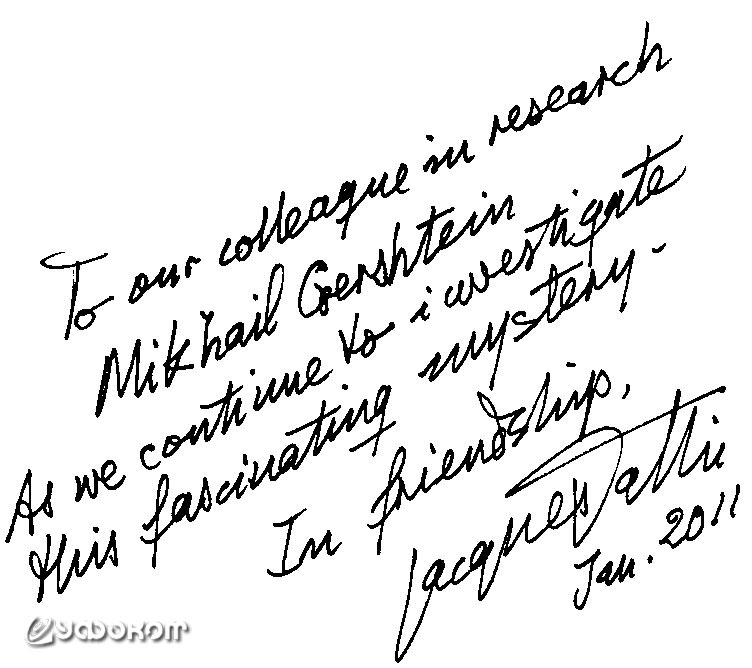 To our colleague in research
Mikhail Gershtein
As we continue to investigate
this fascinating mystery -
In friendship,
Jacques Vallée
Jan. 2011
Уфоком